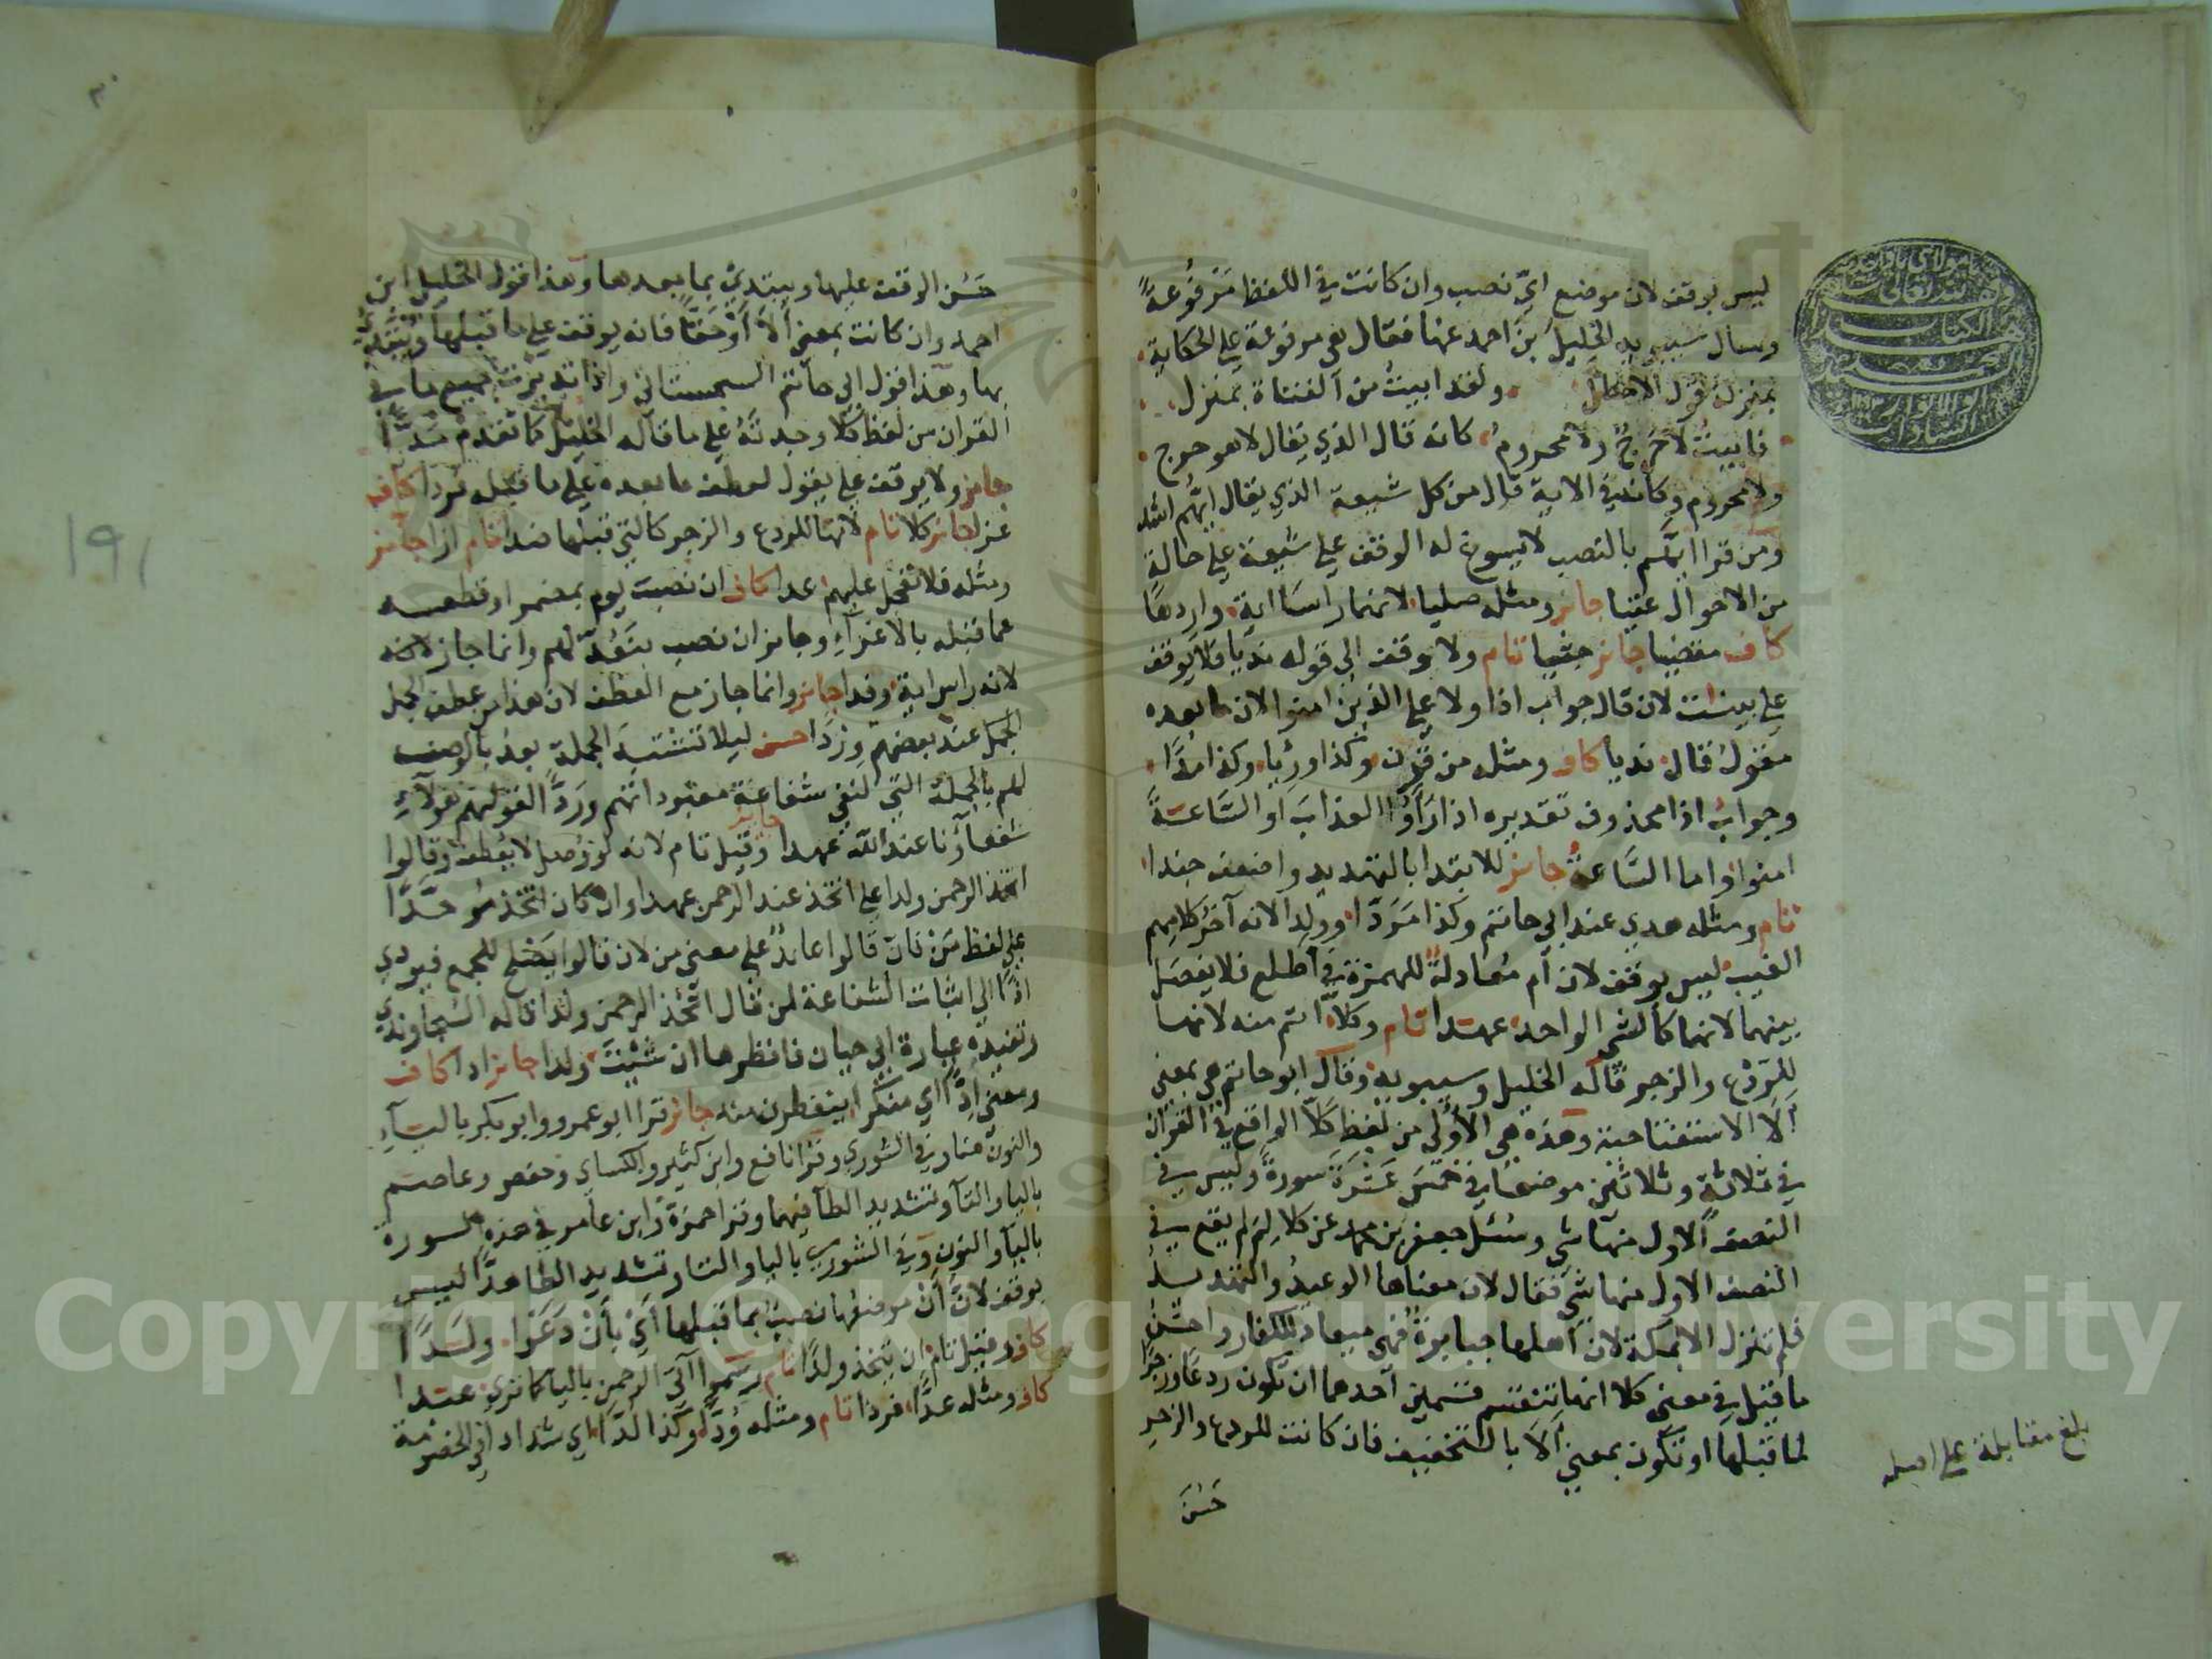 ليس بوقف لان موضع ايّ نصب وان كانت في اللفظ مَرْفُوعَةً
وسال سيبويه الخليلَ بن احمد عنها فقال هي مرفوعة على الحكاية
بمنزلة قول الاخطل ولقد ابيتُ من الفتاة بمنزل
فابيتُ لا حَرِجٌ ولا محروم كانه قال الذي يقال لا هو حرج
ولا محروم وكانه في الاية قال من كل شيعة الذي يقال ايُّهم اشد
ومن قرا ايَّهم بالنصب لا يسوغ له الوقف على شيعة على حالة
من الاحوال عتيا جائز ومثله صليا لانهما راسا اية واردها
كاف مقضيا جائز جثيا تام ولا وقف الى قوله نديا فلا يوقف
على بينات لان قال جواب اذا ولا على الذين امنوا لان ما بعده
مفعول قال نديا كاف ومثله من قرن وكذا ورئيا وكذا مدًّا
وجواب اذا محذوف تقديره اذا رَأوُا العذابَ او السَّاعةَ
امنوا واما السَّاعةُ جائز للابتدا بالتهديد واضعف جندا
تام ومثله هدى عند ابي حاتم وكذا مَرَدّا وولدا لانه آخر كلامهم
الغيب ليس بوقف لان أم معادلةٌ للهمزة في أطلع فلا يفصل
بينهما لانهما كالشي الواحد عهدا تام وكلا اتم منه لانها
للردع والزجر قاله الخليل وسيبويه وقال ابو حاتم هي بمعنى
ألا الاستفتاحية وهذه هي الأولى من لفظ كلّا الواقع في القران
في ثلاثة وثلاثين موضعًا في خمسَ عَشْرَةَ سورة وليس في
النصف الاول منها شي وسئل جعفر بن محمد عن كلا لِمَ لم يقع في
النصف الاول منها شي فقال لان معناها الوعيد والتهديد
فلم تنزل الا بمكة لان اهلها جبابرةٌ فهي ميعاد للكفار واحسن
ما قيل في معنى كلا انها تنقسم قسمين احدهما ان تكون ردعًا وزجرًا
لما قبلها او تكون بمعنى ألا بالتخفيف فان كانت للردع والزجر
حَسُنَ
بلغ مقابلة على اصله
حَسُن الوقف عليها ويبتدئ بما بعدها وهذا قول الخليل ابن
احمد وان كانت بمعنى ألا أوْ حَقًّا فانه يوقف على ما قبلها ويبتدئ
بها وهذا قول ابي حاتم السجستاني واذا تدبرت جميع ما في
القران من لفظ كلا وجدته على ما قاله الخليل كما تقدم مَدًّا
جائز ولا يوقف على يقول لعطف ما بعده على ما قبله فردا كاف
عزا جائز كلا تام لانها للردع والزجر كالتي قبلها ضدا تام ازا جائز
ومثله فلا تعجل عليهم عدا كاف ان نصبت يوم بمضمر او قطعته
عما قبله بالاغراء وجائز ان نصب بنَعُدّ لهم وانما جاز لانه
لانه راس اية وفدا جائز وانما جاز مع العطف لان هذا من عطف الجمل
الجمل عند بعضهم وِردًا حسن ليلا تشتبه الجملة بعد بالوصف
لهم بالجملة التي لنفي شفاعة معبوداتهم ورَدًّا لقولهم هؤلاءِ
شفعاؤنا عند الله عهدا جائز وقيل تام لانه لو وصل لا يعطف وقالوا
اتخذ الرحمن ولدا على اتخذ عند الرحمن عهدا وان كان اتخذ موحَّدًا
على لفظ مَنْ فان قالوا عائدٌ على معنى من لان قالوا يصْلُح للجمع فيودي
اذًا الى اثبات الشفاعة لمن قال اتخذ الرحمن ولدا قاله السجاوندي
وتفيده عبارة ابي حيان فانظرها ان شئتَ ولدا جائز ادا كاف
ومعنى ادًّا اي منكرا ينفطرن منه جائز قرا ابو عمرو وابو بكر بالياءِ
والنون هنا وفي الشورى وقرا نافع وابن كثير والكساي وحفص وعاصم
باليا والتا وتشديد الطا فيهما وقرا حمزة وابن عامر في هذه السورة
باليا والنون وفي الشورى باليا والتا وتشديد الطا هدًّا ليس
بوقف لانَّ أَنْ موضعها نصبٌ بما قبلها أَيْ بأَنْ دَعَوْا ولَدًا
كاف وقيل تام ان يتخذ ولدًا تام ورسموا آتي الرحمن باليا كما ترى عبدا
كاف ومثله عدًّا فردا تام ومثله وُدًّا وكذا لُدًّا اي شدادا في الخصومة
١٩١